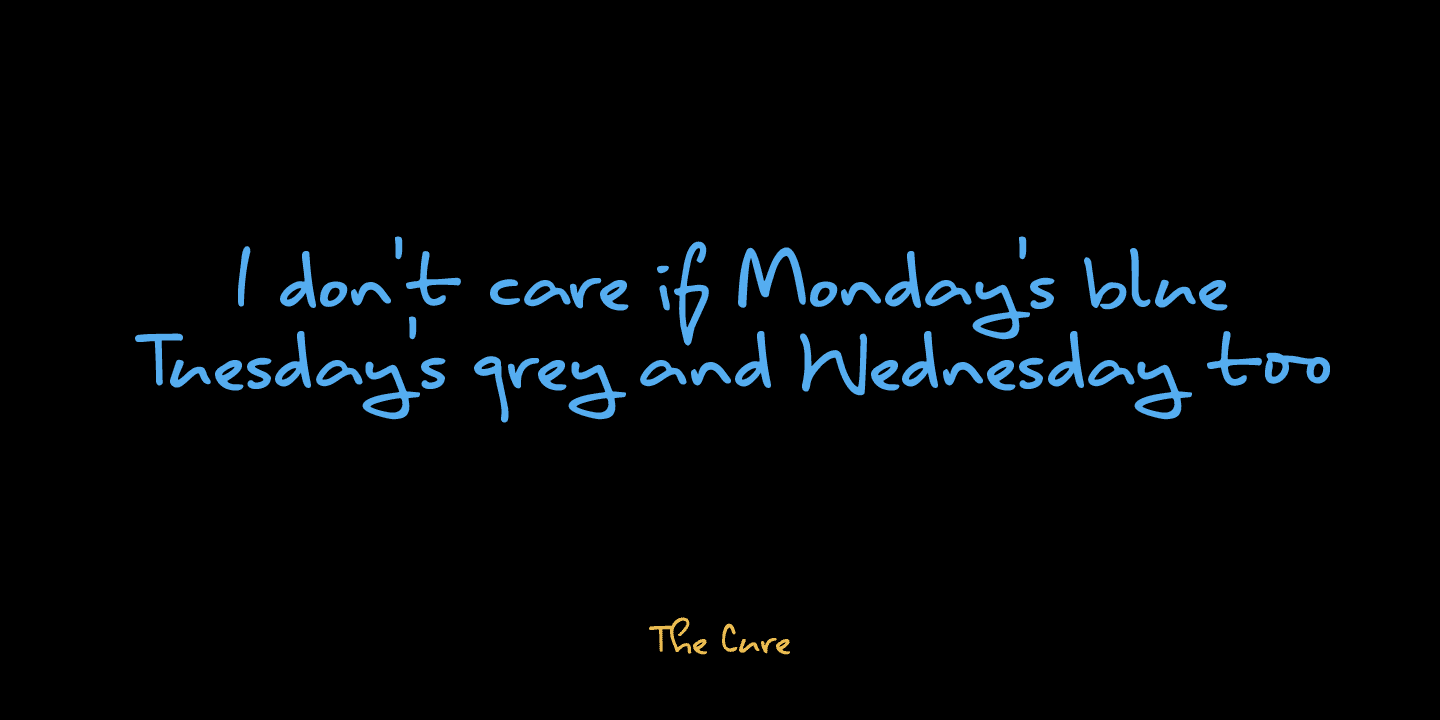 I don't care if Monday's blue
Tuesday's grey and Wednesday too
The Cure